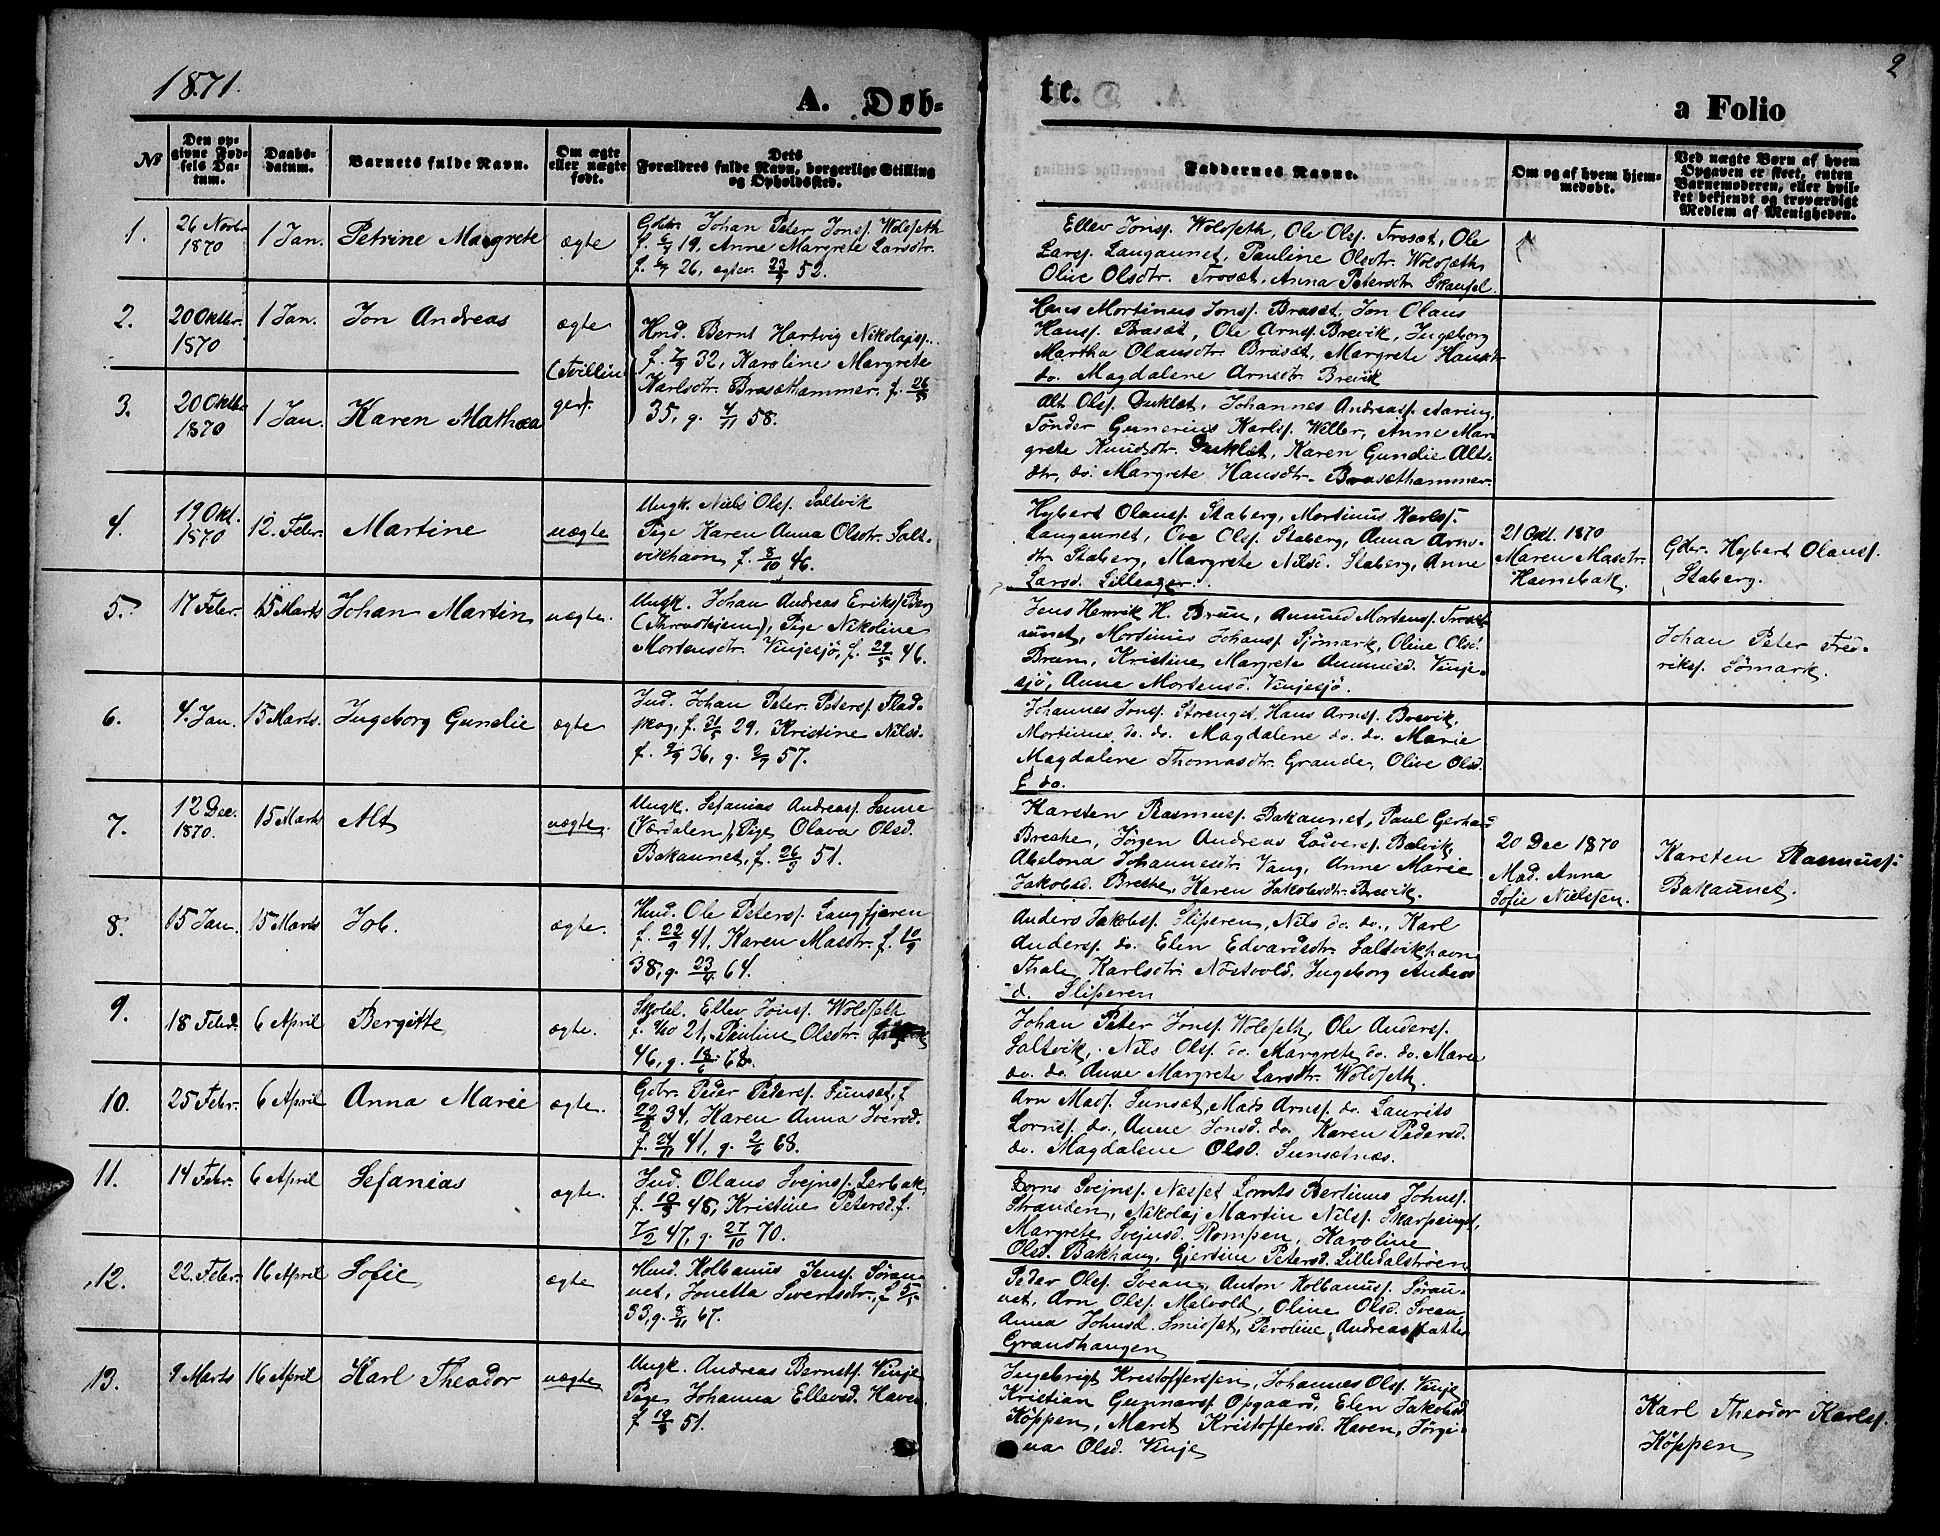 1871.
A. Døb-
te.
a Folio
2
No
Den op-
givne Fød-
sels Da-
tum.
Daabs-
datum.
Barnets fulde Navn.
Om ægte
eller uægte
født.
Dets
Forældres fulde Navn, borgerlige Stilling
og Opholdssted.
Faddernes Navne.
Om og af hvem hjem-
medøbt.
Ved uægte Børn af hvem
Opgaven er skeet, enten
Barnemoderen, eller hvil-
ket bekjendt og troværdigt
Medlem af Menigheden.
1.
26 Novbr
1870
1 Jan.
Petrine Margrete
ægte
Johan Peter Jonss. Woldseth
19, Anne Margrete Larsdtr.
26, 23/9 52.
Ellev Jonss. Woldseth, Ole Olss. Trosæt, Ole
Larss. Langaunet, Pauline Olsdtr. Woldsæth,
Olive Olsdtr. Trosæt, Anna Petersdtr.
2.
20 Oktbr.
1870
1 Jan.
Jon Andreas
ægte
(Tvillin-
Hmd. Bernt Hartvig Nikolajss.
f. 7/9 32, Karoline Margrete
Karlsdtr. Brosæthammer, f. 26/8
35, g. 4/11 58.
Hans Mortinus Jonss. Brosæt, Jon Olaus
Hanss. Brosæt, Ole Arnss. Brevik, Ingeborg
Martha Olausdtr. Brosæt, Margrete Hansdtr.
do. Magdalene Arnsdtr. Brevik
3.
20 Oktbr
1870
1 Jan.
Karen Mathea
ger).
Alt Olss. Duklæt, Johannes Andreass. Aaring,
Tønder Gunerius Karlss. Willer, Anne Mar-
grete Knudsdtr. Duklæt, Karen Gundie Alts-
dtr. do. Margrete Hansdtr. Brosæthammer.
4.
19 Okt.
1870
12. Febr.
Martine
uægte
Ungk. Niels Olss. Saltvik
Pige Karen Anna Olsdtr. Salt-
vikhavn f. 8/10 46.
Hybert Olauss. Staberg, Mortinus Karlss.
Langaunet, Ove Olss. Staberg, Anna Arns-
dtr Staberg, Margrete Nilsd. Staberg, Anne
Larsd. Lilleager.
21 Okt. 1870
Maren Masdtr.
Havnebak.
Gdbr. Hybert Olauss.
Staberg.
5.
17 Febr.
15 Marts
Johan Martin
uægte.
Ungk. Johan Andreas Erikss. Berg
(Throndhjem), Pige Nikoline
Mortensdtr. Vinjesjø, f. 29/5 46.
Jens Henrik H. Bruun, Amund Mortenss. Trosæt-
aunet, Mortinus Johanss. Sjømark, Oline Olsd.
Bruun, Kristine Margrete Amundsd. Vinje-
sjø, Anne Mortensd. Vinjesjø.
Johan Peter Fred-
rikss. Sømark.
6.
4. Jan.
15 Marts.
Ingeborg Gunelie
ægte
Ind. Johan Peter Peterss. Flad-
skog, f. 31/5 29, Kristine Nilsd.
f. 36, g. 2/7 57.
Johannes Jonss. Storenget, Hans Arnss. Brevik,
Mortinus do. do. Magdalene do. do. Marie
Magdalene Thomasdtr. Grande, Olive Olsd.
do.
7.
12 Dec.
1870.
15 Marts
Alt
uægte.
Ungk. Sefanias Andreass.
(Værdalen), Pige Olava Olsd.
Bakaunet, f. 26/3 51.
Karsten Rasmuss. Bakaunet, Paul Gerhard
Breche, Jørgen Andreas Ladverss. Balvik,
Abelona Johannesdtr. Vang, Anne Marie
Jakobsd. Breche, Karen Jakobsdtr. Brevik.
20 Dec 1870
Mad. Anna
Sofie Nielssen.
Karsten Rasmuss.
Bakaunet.
8.
15 Jan.
15 Marts
Job.
ægte.
Hmd. Ole Peterss. Langfjæren
f. 22/9 41, Karen Masdtr. f. 10/9
38, g. 23/6 64.
Anders Jakobss. Slisseren, Nils do. do., Karl
Anderss. do. Elen Edvardsdtr. Saltvikhavn
Thale Karlsdtr. Nøstvold, Ingeborg Anders
d. Slisseren
9.
18 Febr.
6 April
Bergitte
ægte.
Skolel. Ellev Jonss. Woldseth
f. 4/10 21, Pauline Olsdtr.
46, g. 18/6 68.
Johan Peter Jonss. Woldseth, Ole Anderss.
Saltvik, Nils Olss. do. Margrete do. do. Maren
do. do. Anne Margrete Larsdtr. Woldseth.
10.
25 Febr.
6 April
Anna Marie
ægte.
Gdbr. Peder Pederss. Sunsæt, f.
22/2 34, Karen Anna Iversd.
f. 24/11 41, g. 2/6 68.
Arn Mads. Sunsæt, Mads Arnss. do. Laurits
Lornss. do., Anne Jonsd. do. Karen Pedersd.
do. Magdalene Olsd. Sunsætnæs.
11.
14 Febr.
6 April
Sefanias
ægte.
Ind. Olaus Svejnss. Lerbak,
f. 10/3 48, Kristine Petersd. f.
7/2 47, g. 27/10 70.
Lorns Svejnss. Næsset, Lornts Bertinus Johns.
Stranden, Nikolaj Martin Nilss. Skarpenget,
Margrete Svejnsd. Rompen, Karoline
Olsd. Bakhaug, Gjertine Petersd. Lilledalstrøen
12.
22. Febr.
16 April
Sofie
ægte
Hmd. Kolbanus Jenss. Sørau-
net, Jonetta Sivertsdtr., f. 5/5
33, g. 8/11 67.
Peder Olss. Svean, Anton Kolbanuss. Sørau-
net, Arn Olss. Melvold, Oline Olsd. Svean,
Anna Johnsd. Smisæt, Peroline Andreasdatter
Grandhaugen
13.
9 Marts
16 April
Karl Theodor
uægte
Ungk. Andreas Berntss. Vinje
Pige Johanna Ellevsd. Haven
f. 19/8 51.
Ingebrigt Kristofferssen, Johannes Olss. Vinje
Kristian Gunnarss. Opgaard, Elen Jakobsd.
Köppen, Maret Kristoffersd. Haven, Jørgi-
na Olsd. Vinje
Karl Theodor Karlss.
Köppen